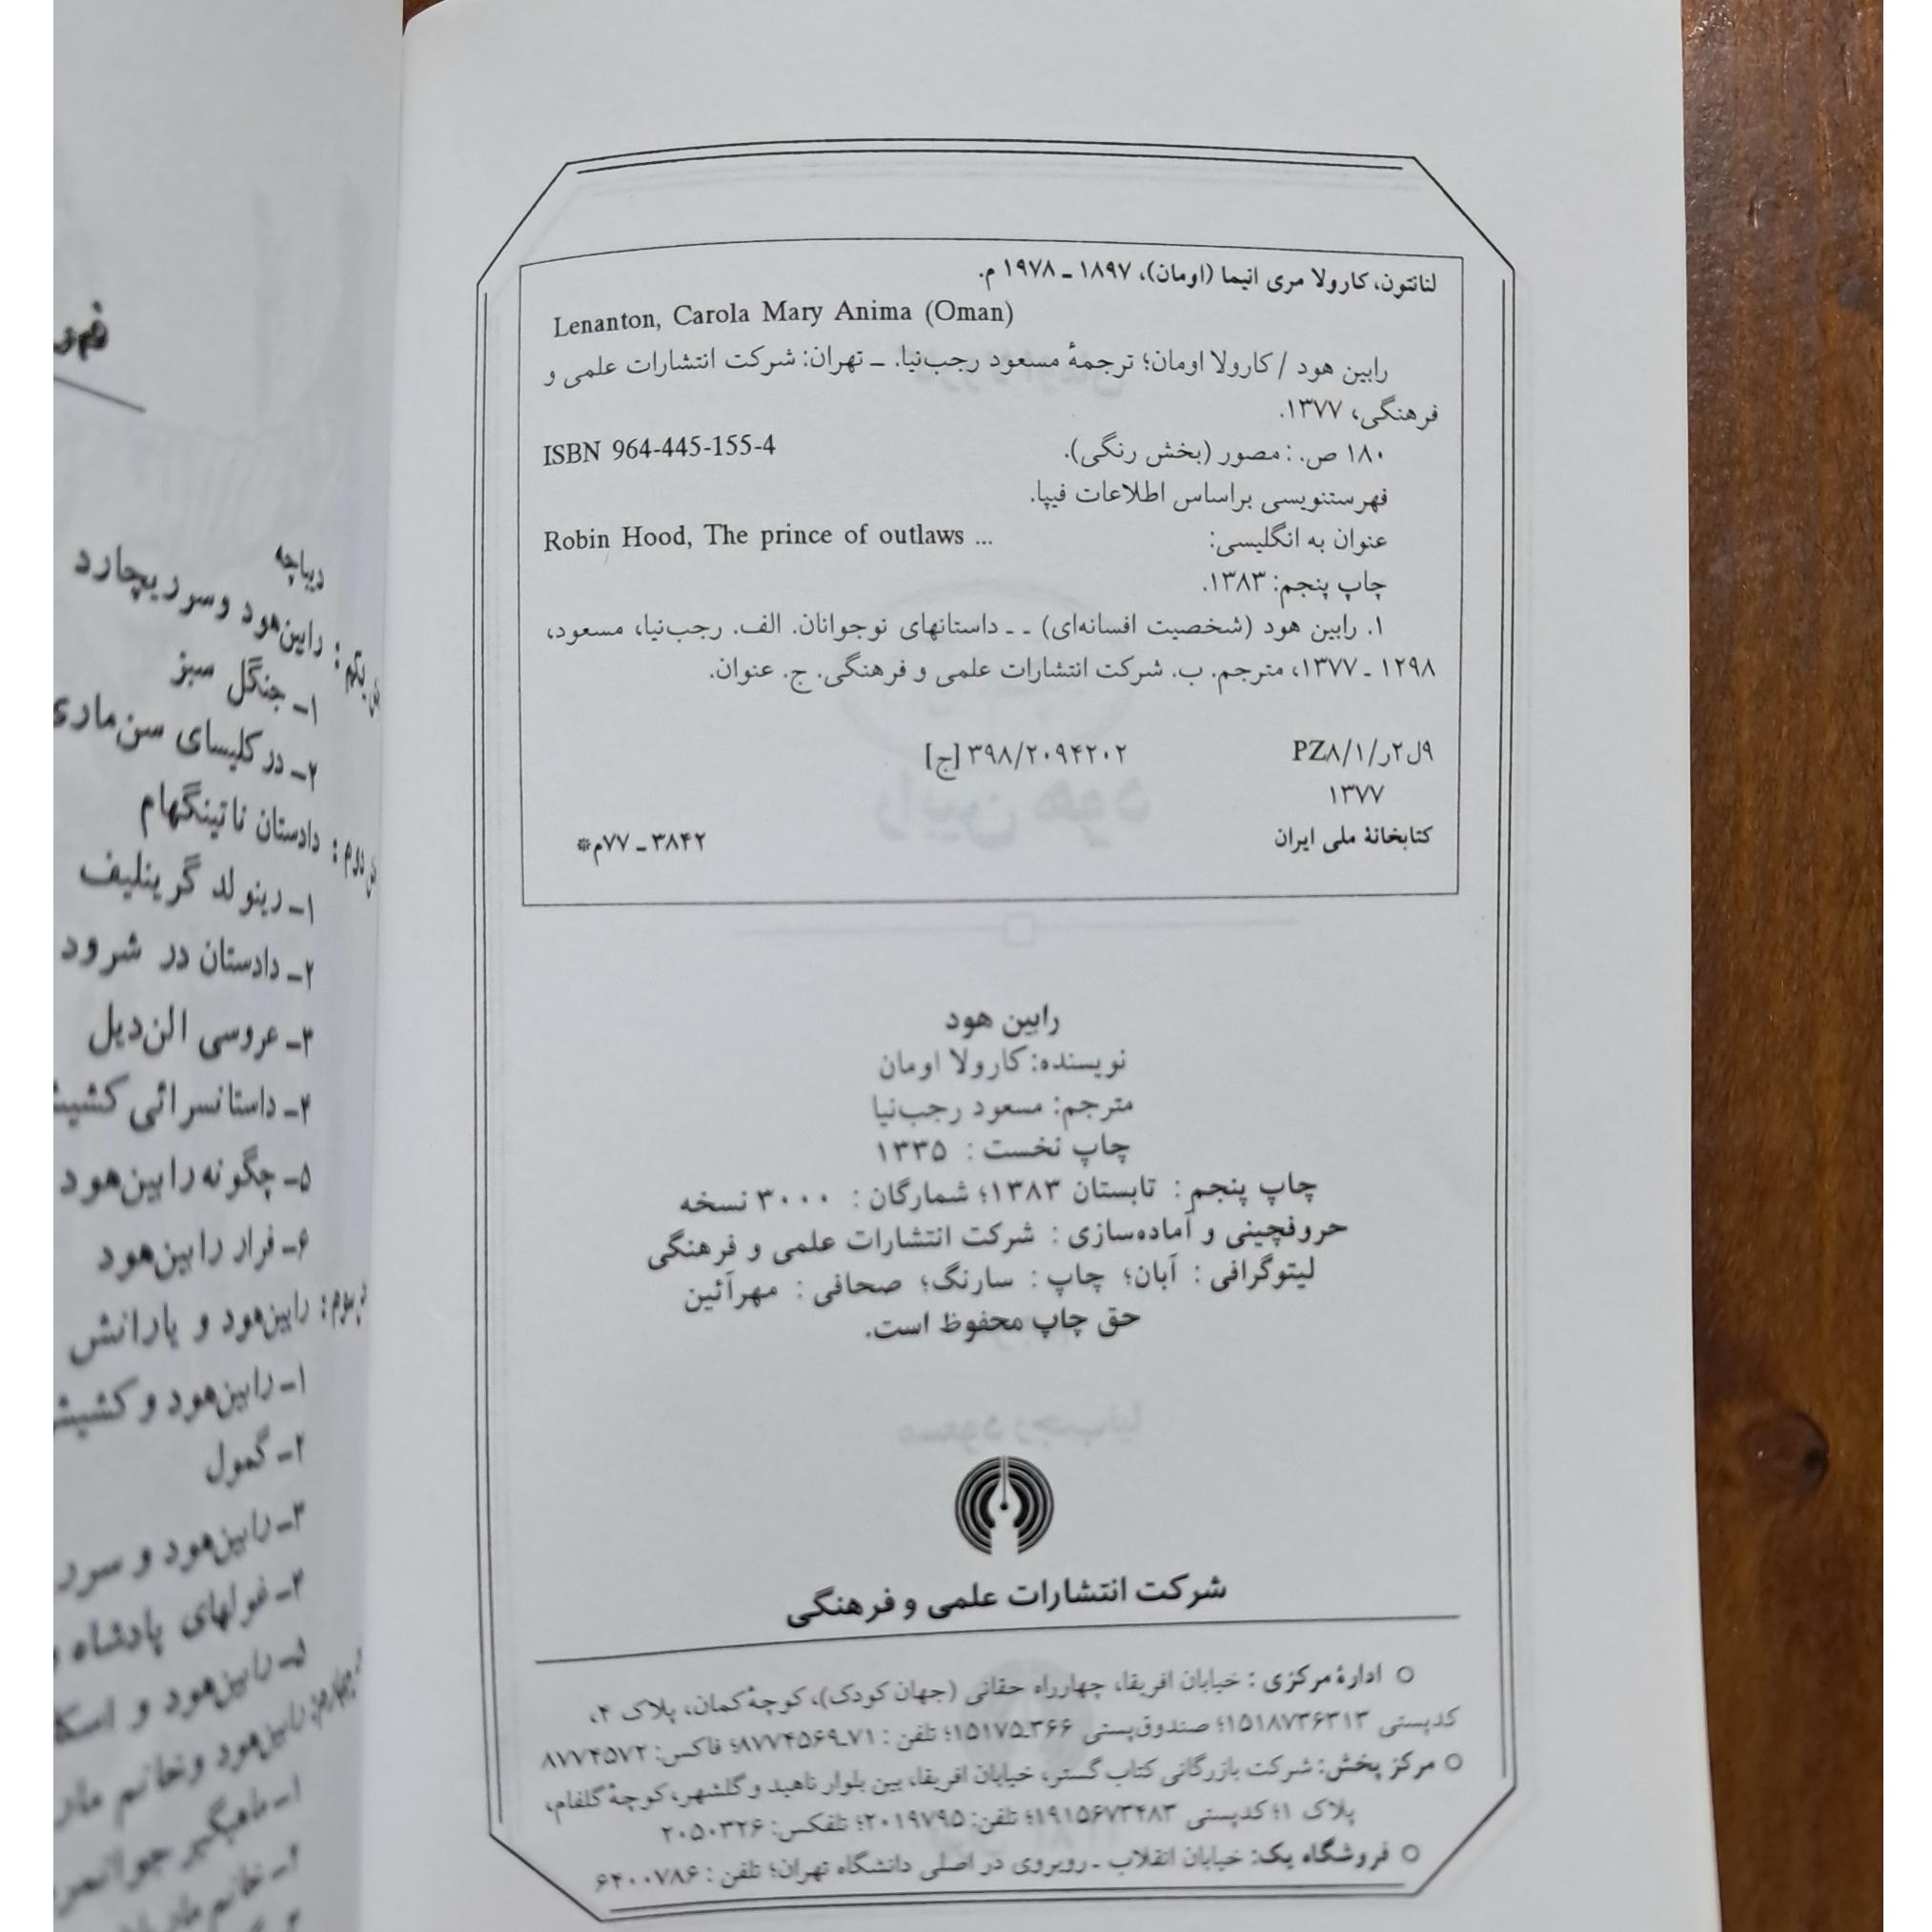 لنانتون، کارولا مری انیما (اومان)، ۱۸۹۷ ـ ۱۹۷۸ م.
Lenanton, Carola Mary Anima (Oman)
رابین هود / کارولا اومان؛ ترجمهٔ مسعود رجب‌نیا. ــ تهران: شرکت انتشارات علمی و
فرهنگی، ۱۳۷۷.
۱۸۰ ص. : مصور (بخش رنگی). ISBN 964-445-155-4
فهرستنویسی براساس اطلاعات فیپا.
عنوان به انگلیسی: Robin Hood, The prince of outlaws ...
چاپ پنجم: ۱۳۸۳.
۱. رابین هود (شخصیت افسانه‌ای) ـ ـ داستانهای نوجوانان. الف. رجب‌نیا، مسعود،
۱۲۹۸ ـ ۱۳۷۷، مترجم. ب. شرکت انتشارات علمی و فرهنگی. ج. عنوان.
۹ل۲ر/PZ۸/۱ ۳۹۸/۲۰۹۴۲۰۲ [ج]
۱۳۷۷
کتابخانهٔ ملی ایران ۳۸۴۲ ـ ۷۷م*
رابین هود
نویسنده: کارولا اومان
مترجم: مسعود رجب‌نیا
چاپ نخست : ۱۳۳۵
چاپ پنجم : تابستان ۱۳۸۳؛ شمارگان : ۳۰۰۰ نسخه
حروفچینی و آماده‌سازی : شرکت انتشارات علمی و فرهنگی
لیتوگرافی : آبان؛ چاپ : سارنگ؛ صحافی : مهرآئین
حق چاپ محفوظ است.
شرکت انتشارات علمی و فرهنگی
○ ادارهٔ مرکزی : خیابان افریقا، چهارراه حقانی (جهان کودک)، کوچهٔ کمان، پلاک ۴،
کدپستی ۱۵۱۸۷۳۶۳۱۳؛ صندوق‌پستی ۳۶۶ـ۱۵۱۷۵؛ تلفن : ۷۱ـ۸۷۷۴۵۶۹؛ فاکس: ۸۷۷۴۵۷۲
○ مرکز پخش: شرکت بازرگانی کتاب گستر، خیابان افریقا، بین بلوار ناهید و گلشهر، کوچهٔ گلفام،
پلاک ۱؛ کدپستی ۱۹۱۵۶۷۳۴۸۳؛ تلفن: ۲۰۱۹۷۹۵؛ تلفکس: ۲۰۵۰۳۲۶
○ فروشگاه یک: خیابان انقلاب ـ روبروی در اصلی دانشگاه تهران؛ تلفن : ۶۴۰۰۷۸۶
دیباچه
رابین‌هود و سر ریچارد
۱ـ جنگل سبز
۲ـ در کلیسای سن‌ماری
دوم : دادستان ناتینگهام
۱ـ رینولد گرینلیف
۲ـ دادستان در شرود
۳ـ عروسی الن‌دیل
۴ـ داستانسرائی
۵ـ چگونه رابین‌هود
۶ـ فرار رابین‌هود
رابین‌هود و یارانش
۱ـ رابین‌هود و
۲ـ گمول
۳ـ رابین‌هود و سر
۴ـ غولهای پادشاه
۵ـ رابین‌هود و
رابین‌هود و خانم
۱ـ ماهیگیر